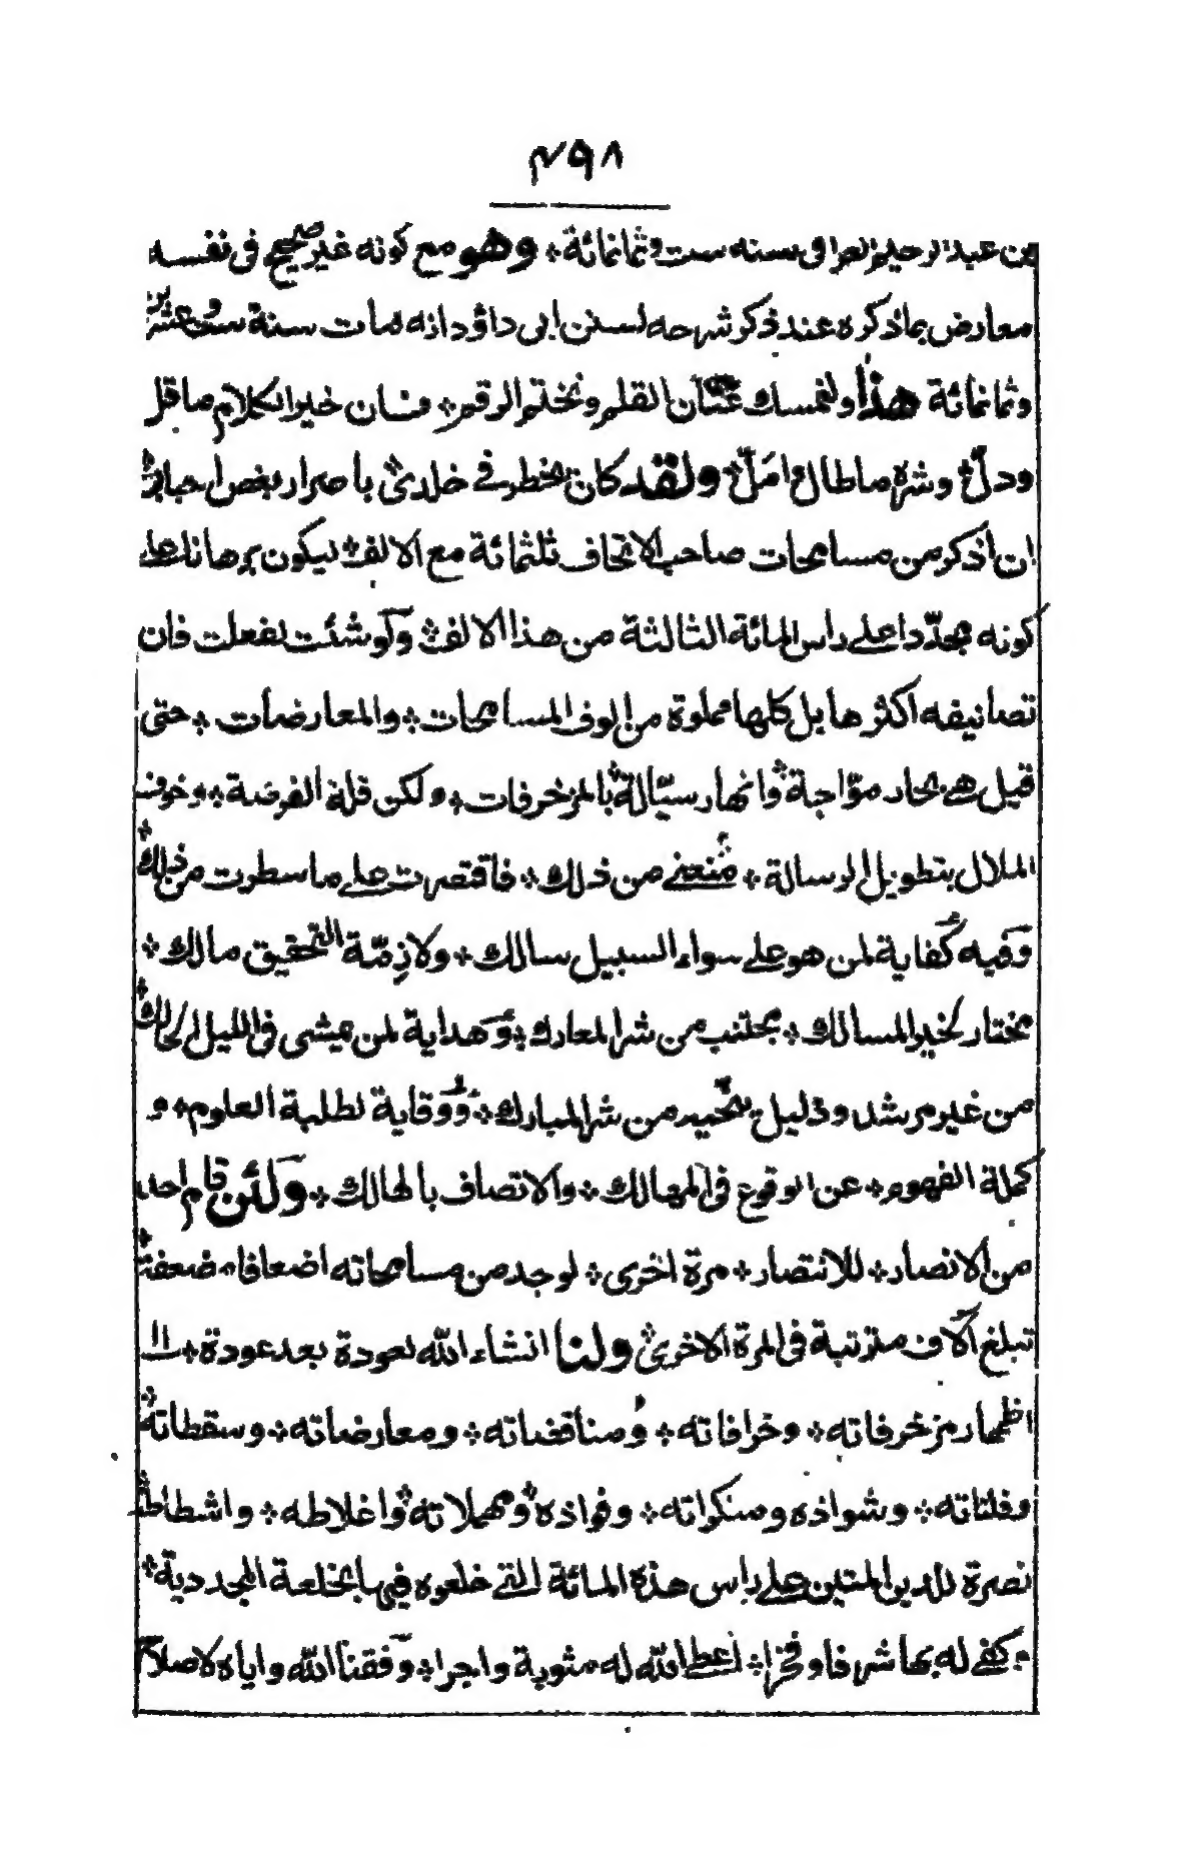 ٤٩٨
بن عبد الرحيم العراقى سنه ست وثمانمائة ٭ وهو مع كونه غير صحيح فى نفسه
معارض بما ذكره عند ذكر شرحه لسنن ابى داؤد انه مات سنة ست وعشرين
وثمانمائة هذا ولنمسك عنان القلم ونختم الرقم ٭ فان خير الكلام ما قل
ودل ٭ وشره ما طال وامل ٭ ولقد كان يخطر فى خلدى ٭ باصرار بعض احبابى ٭
ان اذكر من مسامحات صاحب الاتحاف ثلثمائة مع الالف ٭ ليكون برهانا على
كونه مجدّدا على راس المائة الثالثة من هذا الالف ٭ ولو شئت لفعلت فان
تصانيفه اكثرها بل كلها مملوة من الوف المسامحات ٭ والمعارضات ٭ حتى
قيل هى بحار موّاجة ٭ وانهار سيّالة ٭ بالمزخرفات ٭ ولكن قلة الفرصة ٭ وخوف
الملال بتطويل الرسالة ٭ منعنى من ذلك ٭ فاقتصرت على ما سطرت من ذلك ٭
وفيه كفاية لمن هو على سواء السبيل سالك ٭ ولازمّة التحقيق مالك ٭
مختار لخير المسالك ٭ مجتنب من شر المعارك ٭ وهداية لمن يمشى فى الليل الحالك ٭
من غير مرشد ودليل ٭ يحيد من شر المبارك ٭ ووقاية لطلبة العلوم ٭ و
كملة الفهوم ٭ عن الوقوع فى المهالك ٭ والاتصاف بالهالك ٭ ولئن قام احد
من الانصار ٭ للانتصار ٭ مرة اخرى ٭ لوجد من مسامحاته اضعافا مضعفة ٭
تبلغ آلاف مترتبة فى المرة الاخرى ٭ ولنا انشاء الله لعودة بعد عودة ٭ الى
اظهار مزخرفاته ٭ وخرافاته ٭ ومناقضاته ٭ ومعارضاته ٭ وسقطاته ٭
وفلتاته ٭ وشواذه ومنكراته ٭ وفواذه ٭ ومهملاته ٭ واغلاطه ٭ واشطاطه ٭
نصرة للدين المتين على راس هذه المائة التى خلعوه فيها بالخلعة المجددية ٭
وكفى له بها شرفا وفخرا ٭ اعطى الله له مثوبة واجرا ٭ وفقنا الله واياه لاصلاح